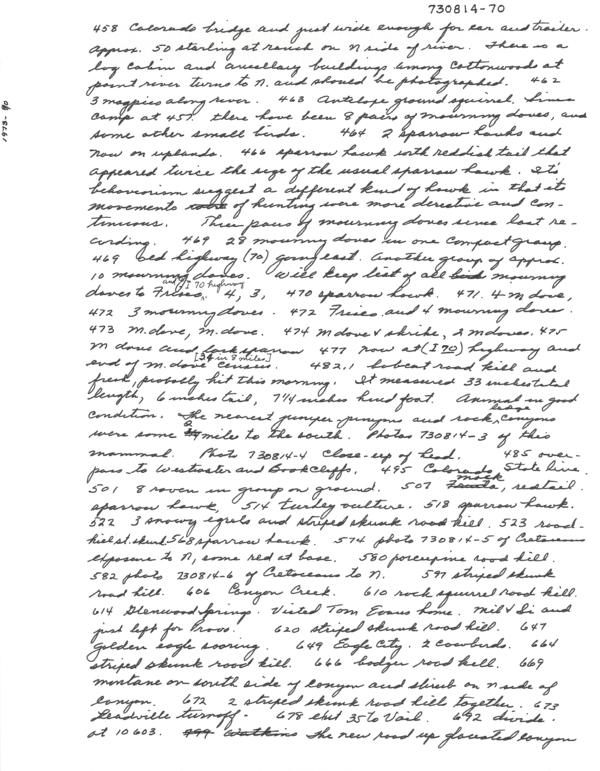 730814-70
1973-70
458 Colorado bridge and just wide enough for car and trailer.
Approx. 50 starling at ranch on N side of river. There is a
log cabin and ancillary buildings among Cottonwoods at
point river turns to N. and should be photographed. 462
3 magpies along river. 463 Antelope ground squirrel. Since
camp at 457 there have been 8 pairs of mourning doves, and
some other small birds. 464 2 sparrow hawks and
now on uplands. 466 sparrow hawk with reddish tail that
appeared twice the size of the usual sparrow hawk. Its
behaviorism suggest a different kind of hawk in that its
movements of hunting were more directive and con-
tinuous. Three pairs of mourning doves since last re-
cording. 469 28 mourning doves in one compact group.
469 old highway (70) going east. Another group of approx.
10 mourning doves. Will keep list of all mourning
doves to Frisco, and I 70 highway 4, 3, 470 sparrow hawk. 471. 4 m dove,
472 3 mourning doves. 472 Frisco and 4 mourning doves.
473 m. dove, m. dove. 474 m dove & shrike, 2 m doves. 475
m dove and lark sparrow 477 now at (I 70) highway and
end of m. dove census. [34 in 8 miles] 482.1 bobcat road kill and
fresh, probably hit this morning. It measured 33 inches total
length, 6 inches tail, 7 1/4 inches hind foot. Animal in good
condition. The nearest juniper-pinyons and rock ledge, canyons
were some 2 miles to the south. Photos 730814-3 of this
mammal. Photo 730814-4 close-up of head. 485 over-
pass to Westwater and Bookcliffs. 495 Colorado State line.
501 8 raven in group on ground. 507 Mack, redtail.
sparrow hawk, 514 turkey vulture. 518 sparrow hawk.
522 3 snowy egrets and striped skunk road kill. 523 road-
kill st. skunk 568 sparrow hawk. 574 photo 730814-5 of Cretaceous
exposure to N, some red at base. 580 porcupine road kill.
582 photo 730814-6 of Cretaceous to N. 597 striped skunk
road kill. 606 Canyon Creek. 610 rock squirrel road kill.
614 Glenwood Springs. Visited Tom Evans home. Mil & Di and
just left for Provo. 620 striped skunk road kill. 647
golden eagle soaring. 649 Eagle City. 2 cowbirds. 664
striped skunk road kill. 666 badger road kill. 669
montane on south side of canyon and shrub on N side of
canyon. 672 2 striped skunk road kill together. 673
Leadville turnoff. 678 exit 35 to Vail. 692 divide.
at 10603. The new road up glaciated canyon